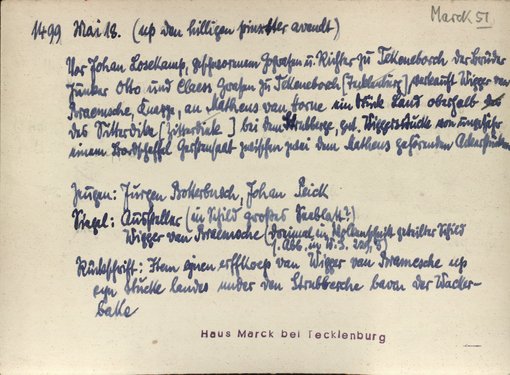 Marck 51
1499 Mai 18. (up den hilligen pinxster avendt)
Vor Johan Losekamp, geschworenem Gografen u. Richter zu Tekeneborch der Brüder
Junker Otto und Claess Grafen zu Tekeneborch [Tecklenburg] verkauft Wigger van
Braemsche, Knappe, an Matheus van Horne ein Stück Land oberhalb
des Sitterdike [Zitterdiek] bei dem Strubberge, gnt. Wiggerstücke von ungefähr
einem Hardscheffel Gerstensaat zwischen zwei dem Matheus gehörenden Ackerstücken
Zeugen: Jurgen Botterbusch, Johan Peick
Siegel: Aussteller (im Schild großes Seeblatt?)
Wigger van Braemsche (dreimal im Wolkenschnitt geteilter Schild
s. Abb. in W.S. Taf. 8)
Rückschrift: Item eynen erffkoep van Wigger van Bramesche up
eyn stucke landes under den Strubberghe bavon der Wacker-
beke
Haus Marck bei Tecklenburg